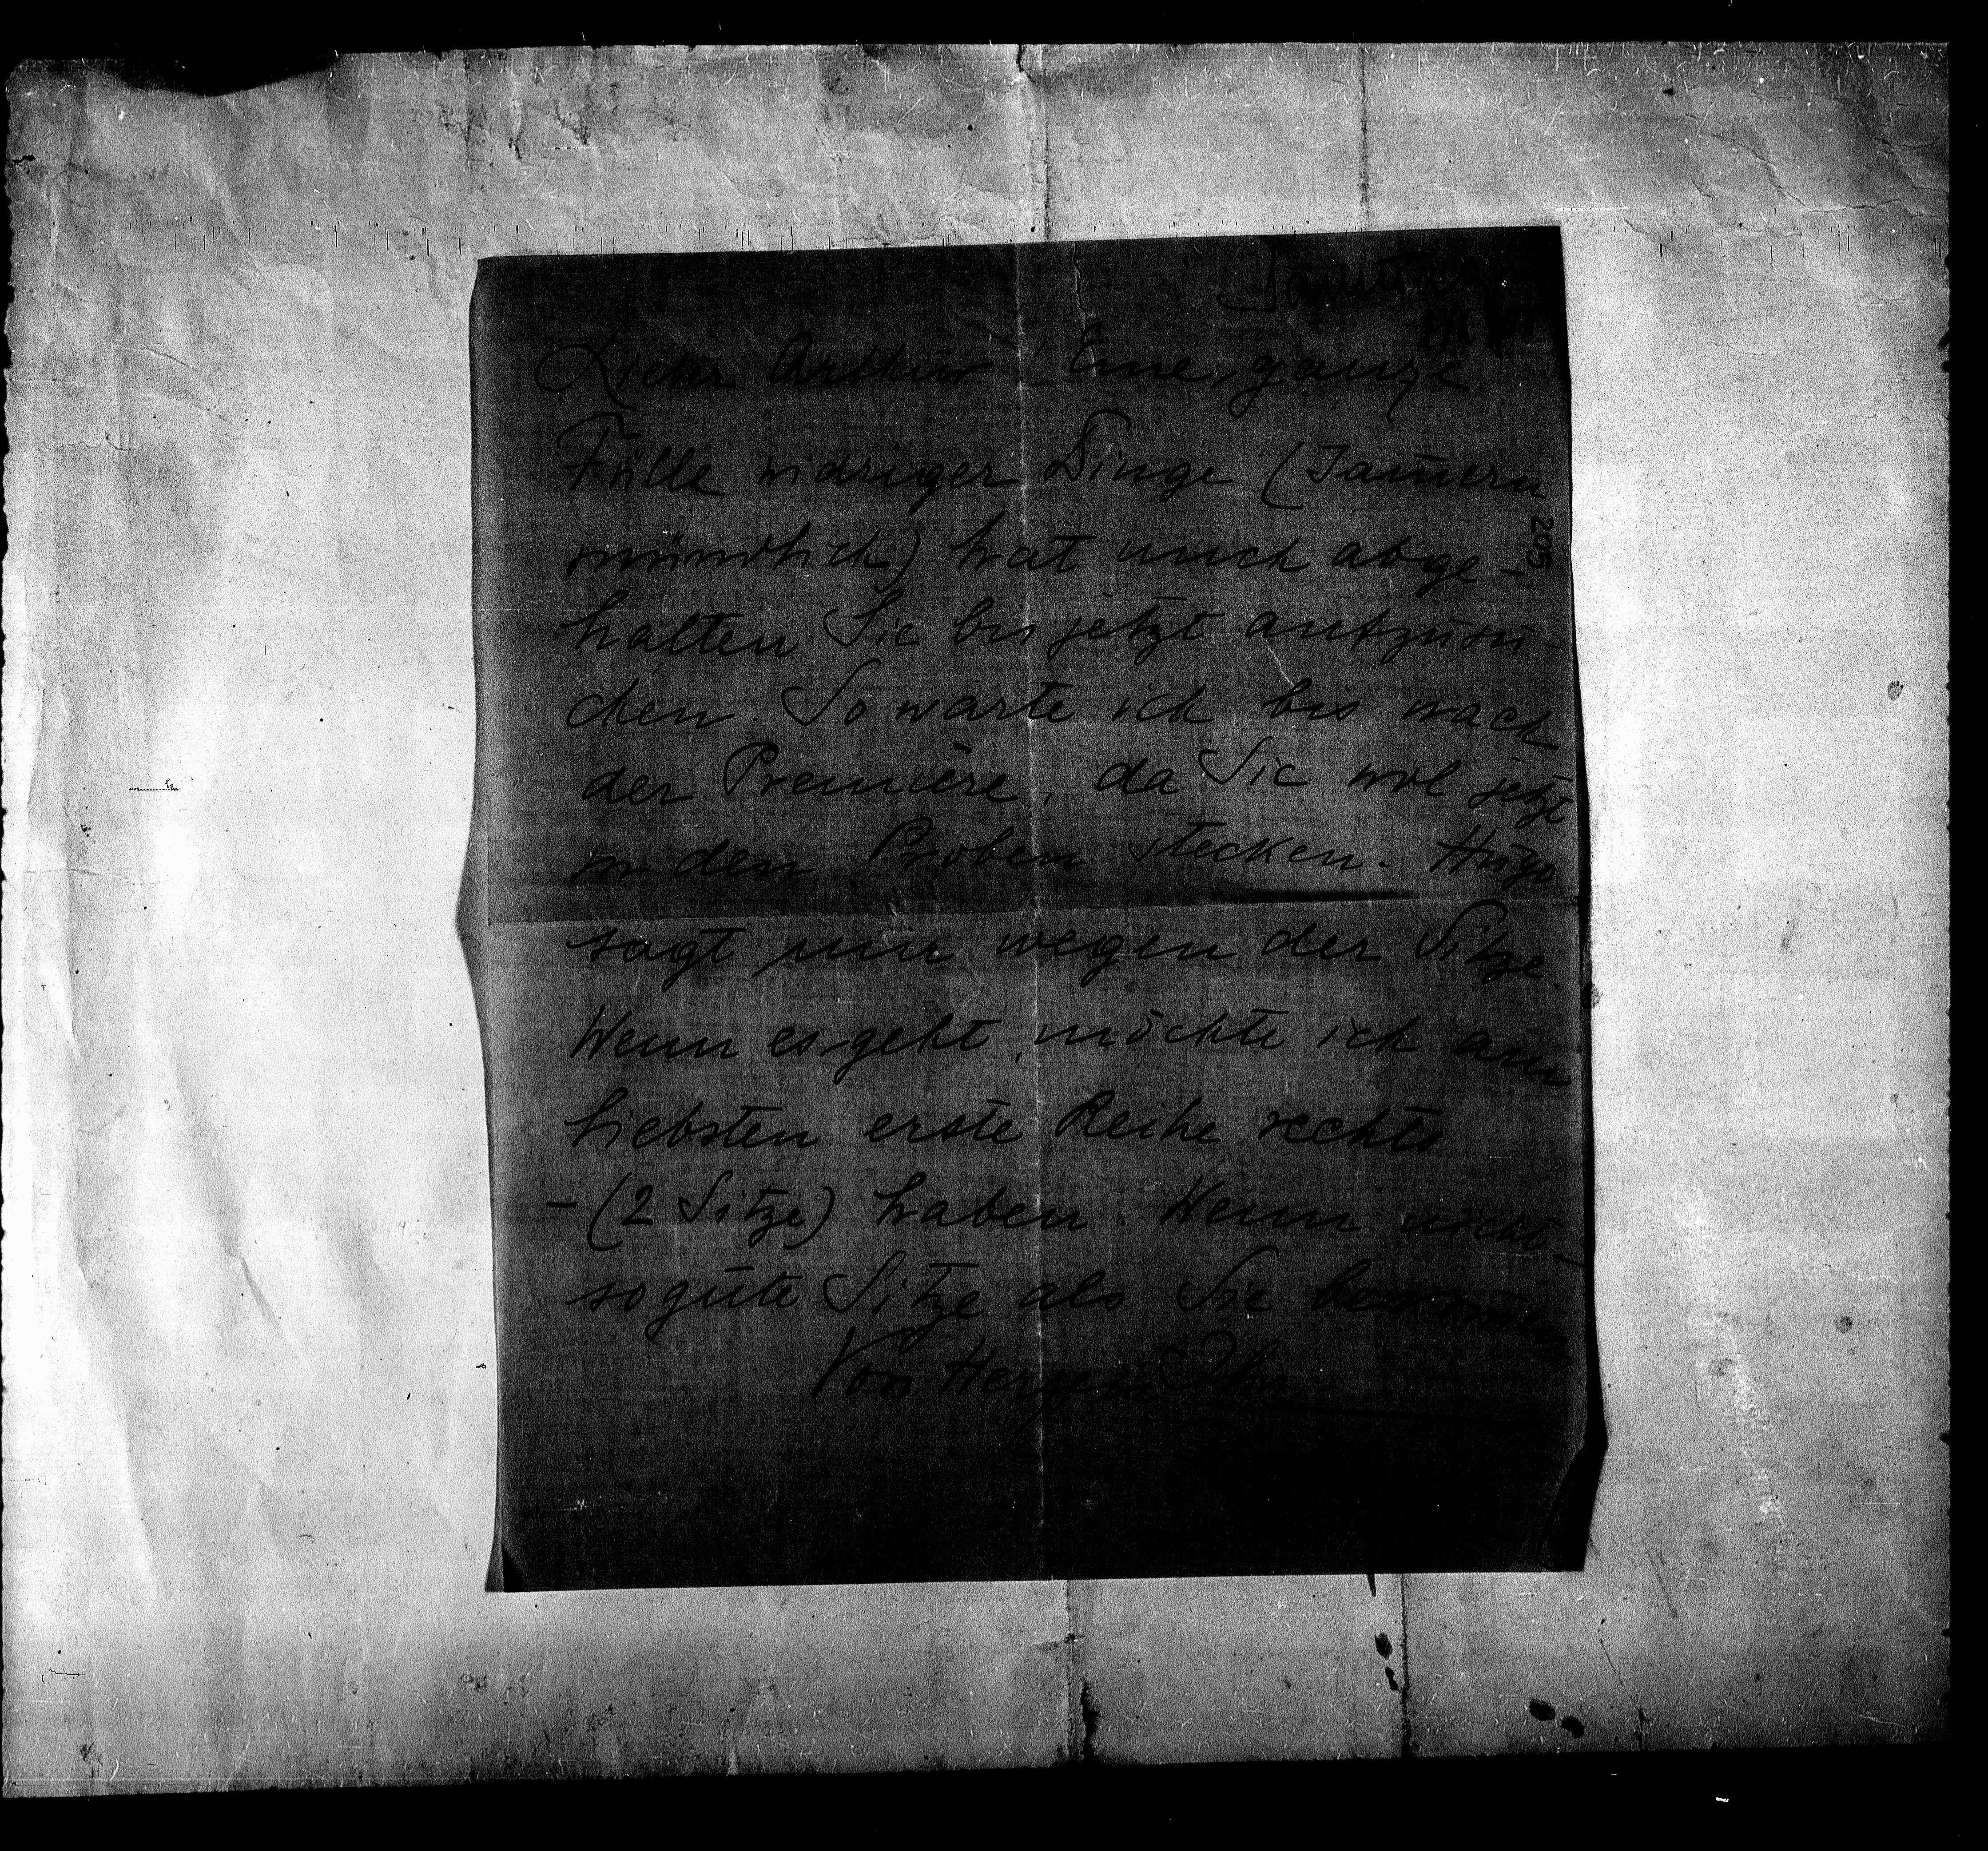 Lieber Arthur! Eine ganze
Fülle widriger Dinge (Jam̄ern
mündlich) hat mich abge-
halten Sie bis jetzt aufzusu-
chen. So warte ich bis nach
der Première, da Sie wol jetzt
in den Proben stecken. Hugo
sagt mir wegen der Sitze.
Wenn es geht, möchte ich am
liebsten erste Reihe rechts
– (2 Sitze) haben. Wenn nicht –
so gute Sitze als Sie bekom̄en
Von Herzen Ihr
205